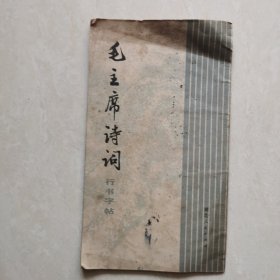 毛主席诗词
行书字帖